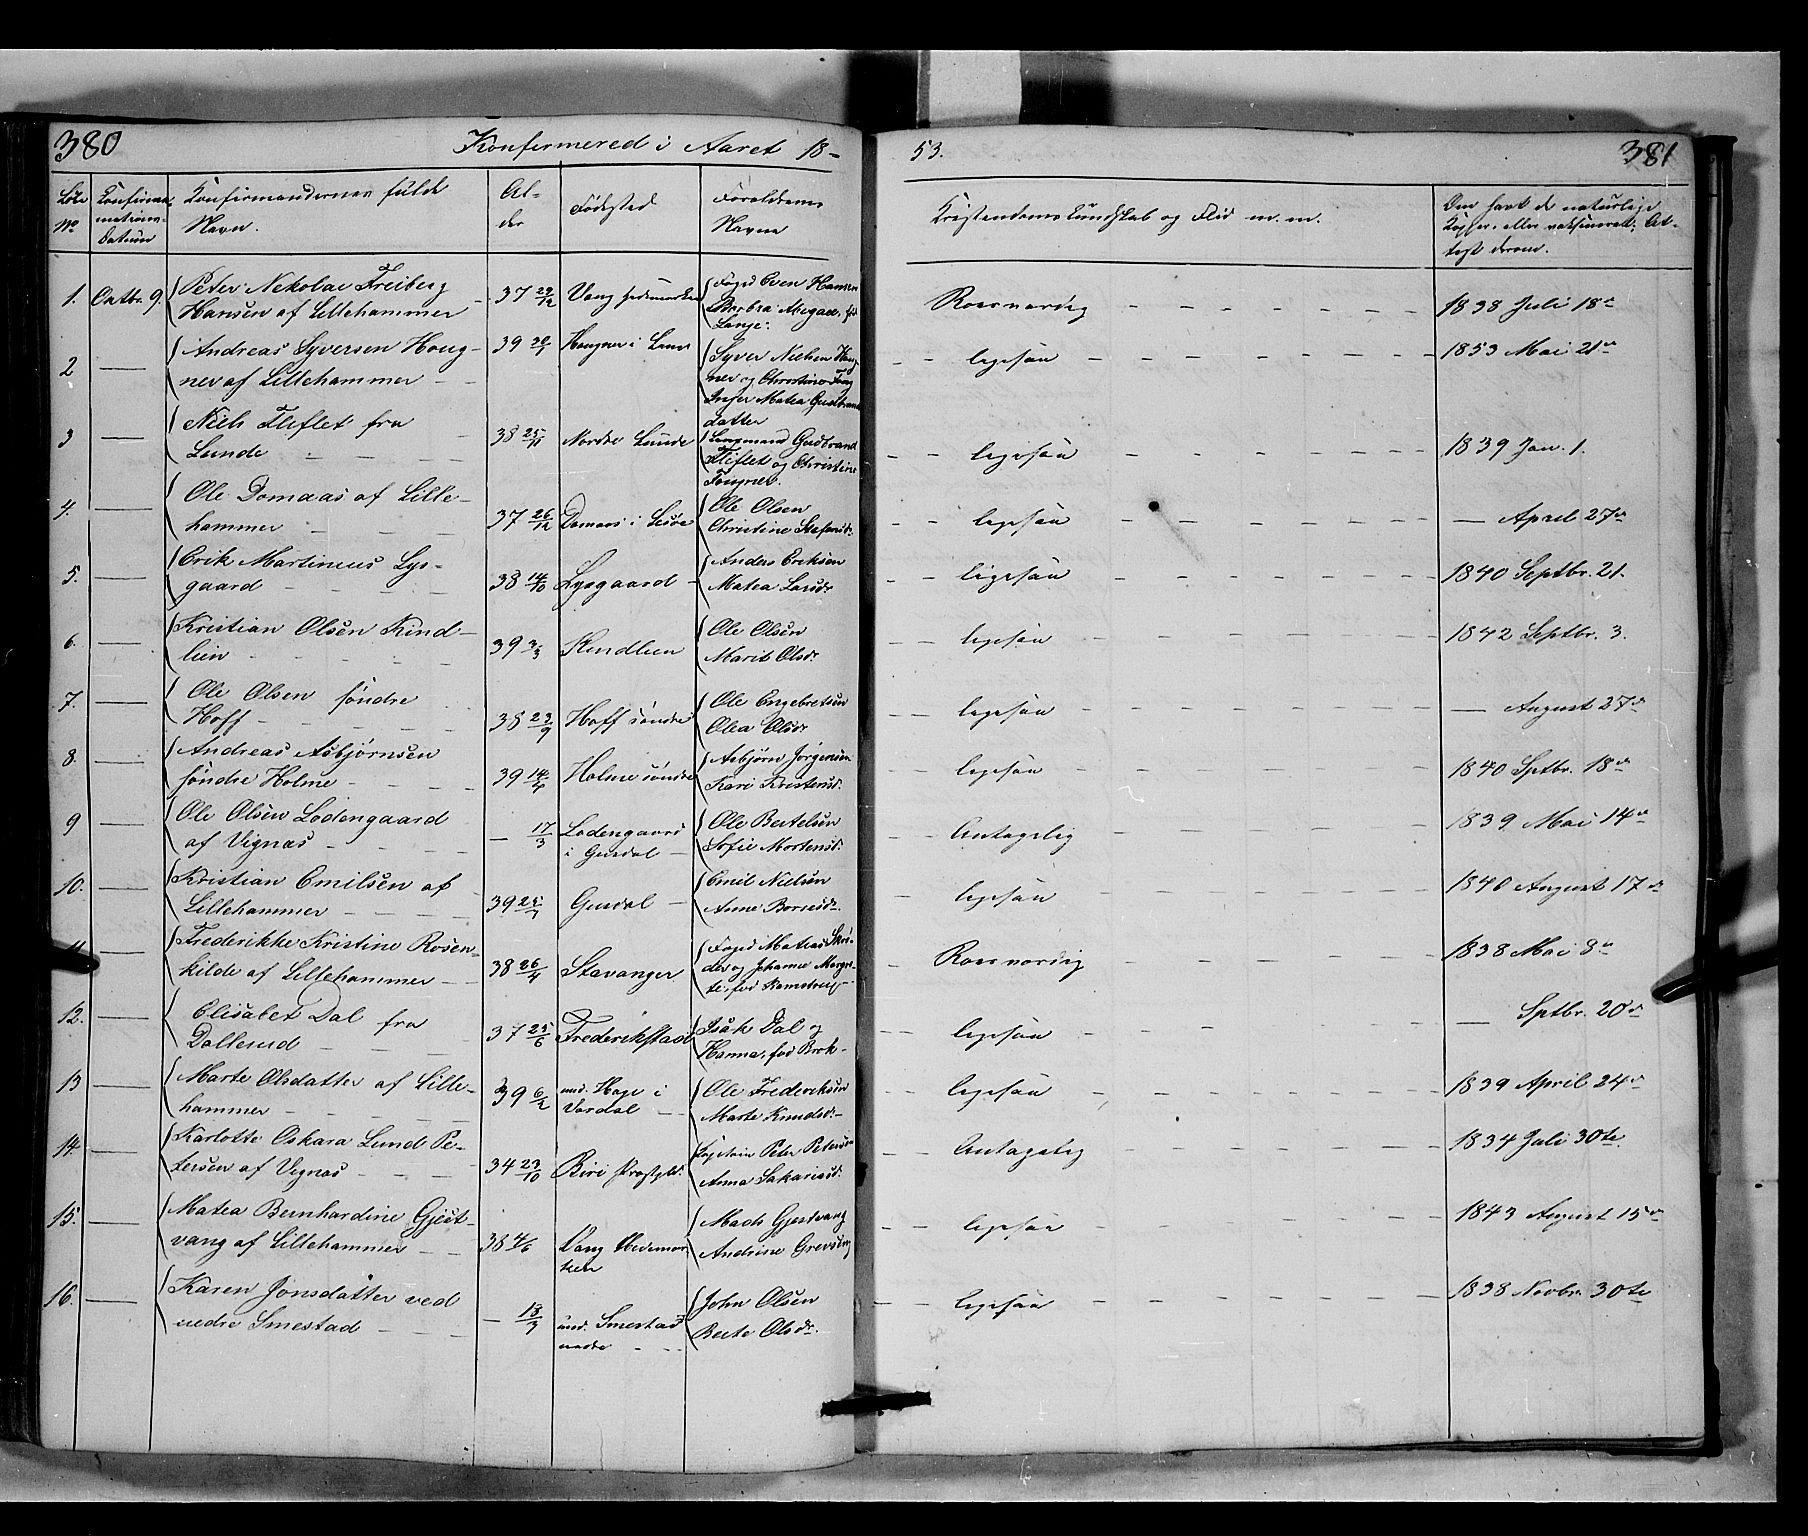 380
Konfirmered i Aaret 18-
53.
381
Løbe No
Konfirmationsdatum
Konfirmandernes fulde Navn.
Alder
Fødested
Forældrenes Navne
Kristendomskundskab og Flid m. m.
Om havt de naturlige
Kopper, eller vaksineret; At-
test derom.
1. Octbr. 9. Peter Nekolai Freiberg
Hansen af Lillehammer - 37 29/12 Vang Hedemarken Foged Even Hansen
Barbra
Lange. Roesværdig 1838 Juli 18de
2 — Andreas Syversen Houg-
ner af Lillehammer - - 39 20/1 Hougner i Syver Nielsen Houg-
ner og Christine
Matea Gudbrands
datter ligesaa 1853 Mai 21de
3 — Niels Fliflet fra
Lunde 38 25/11 Nordre Lunde Gudbrand
Fliflet og Christine
Fougner. ligesaa 1839 Jan. 1.
4. — Ole Domaas af Lille-
hammer 37 26/12 Domaas i Ole Olsen
Christine Stefansdr. ligesaa — April 27de
5. — Erik Martineus Lys-
gaard 38 14/10 Lysgaard - Anders Eriksen
Matea Larsdr ligesaa 1840 Septbr. 21.
6. — Kristian Olsen Kind-
lien 39 3/3 Kindlien Ole Olsen
Marit Olsdr ligesaa 1842 Septbr. 3.
7. — Ole Olsen søndre
Hoff 38 23/9 Hoff søndre Ole Engebretsen
Olea Olsdr ligesaa — August 27de
8. — Andreas Asbjørnsen
søndre Holme 39 14/4 Holme søndre Asbjørn Jørgensen
Kari Kristensd. ligesaa 1840 Sptbr. 18de
9 — Ole Olsen Lodengaard
af Vignæs - 17/3 Lodengaard
i Gusdal - Ole Bertelsen
Sofie Mortensd. Antagelig 1839 Mai 14de
10. — Kristian Emilsen af
Lillehammer 39 25/7 Gusdal - Emil Nielsen
Anne ligesaa 1840 August 17de
11 — Frederikke Kristine Rosen-
kilde af Lillehammer 38 26/4 Stavanger Foged Matias Skrø-
der og Johanne Margre-
te, fød Roesværdig 1838 Mai 8de
12. — Elisabet Dal fra
Dallerud 37 25/6 Frederikstad Isak Dal og
Hanna, fød Brok- ligesaa — Sptbr. 20de
13 — Marte Olsdatter af Lille-
hammer 39 6/2 und. Hage i
Vardal Ole Frederiksen
Marte Knudsdr. ligesaa 1839 April 24de
14. — Karlotte Oskara Lund Pe-
tersen af Vignæs 34 23/10 Biri Prestgld. Peter Petersen
Anna Sakariasd. Antagelig 1834 Juli 30te
15. — Matea Bernhardine Gjest-
vang af Lillehammer 38 4/6 Vang Hedemar-
ken Mads Gjestvang
Andrine ligesaa 1843 August 15de
16. — Karen Jonsdatter ved
nedre Smestad - 18/9 und. Smestad
nedre John Olsen
Berte Olsdr. ligesaa 1838 Novbr. 30te